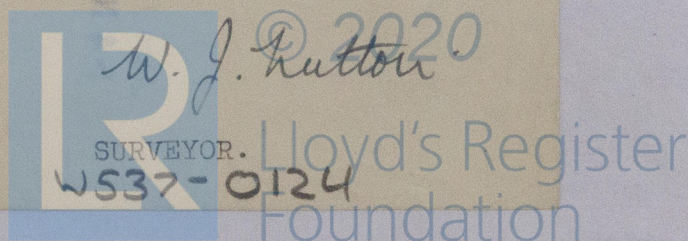 © 2020
W. J.
SURVEYOR.
W537-0124
LR
Lloyd's Register
Foundation